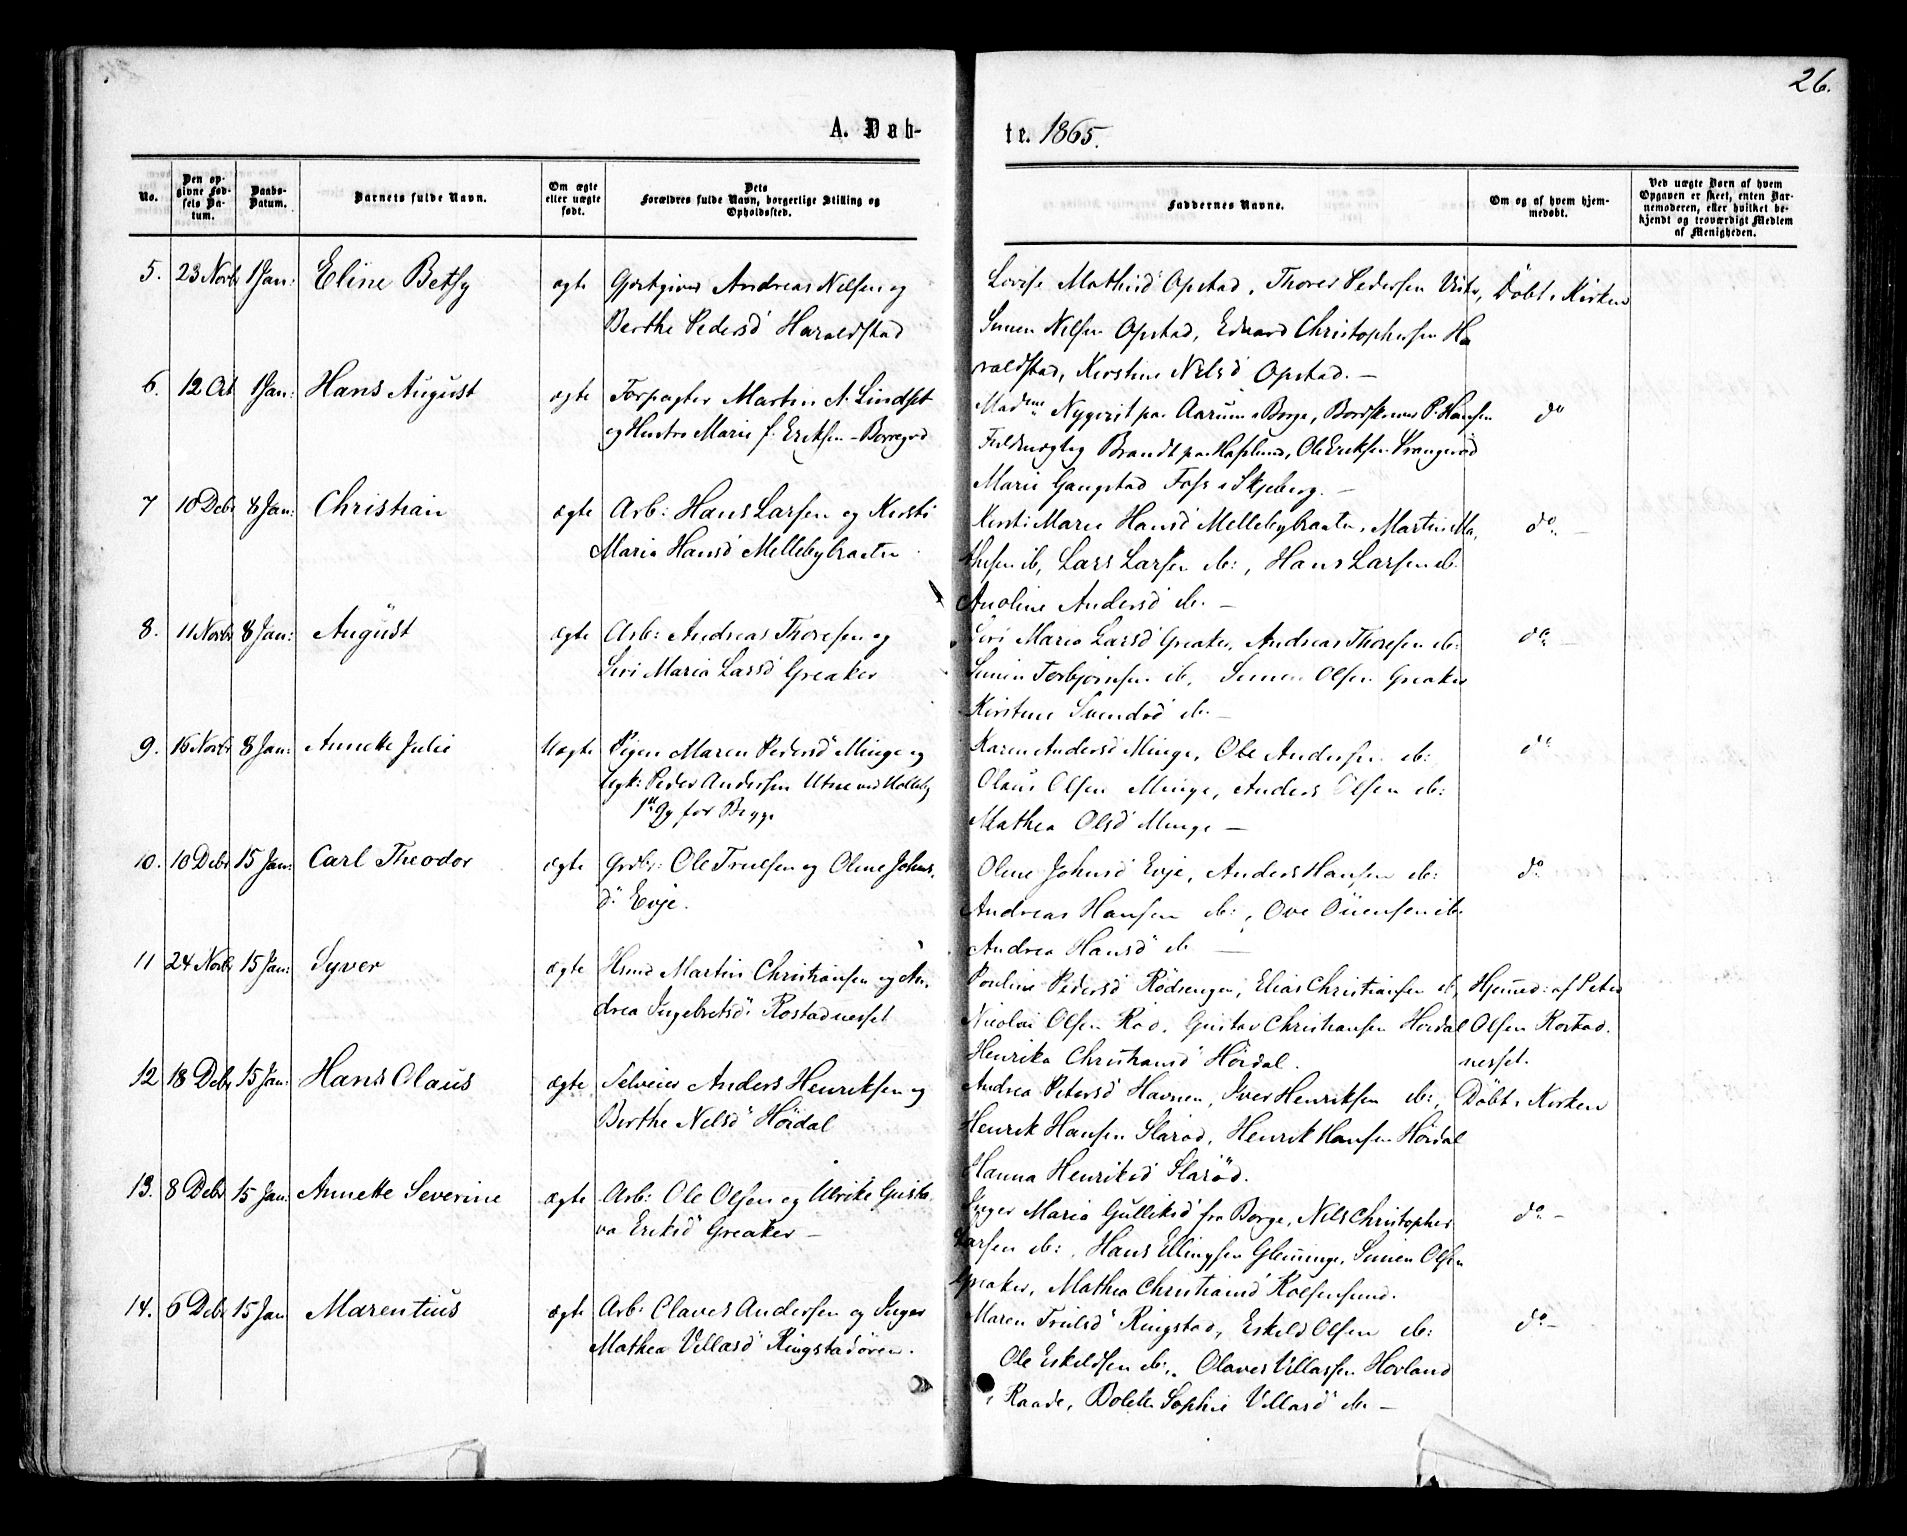 26.
A. Døb-
te. 1865.
No.
Den opgivne Fødsels Datum.
Daabs-Datum.
Barnets fulde Navn.
Om ægte eller uægte født.
Dets Forældres fulde Navn, borgerlige Stilling og Opholdssted.
Faddernes Navne.
Om og af hvem hjemmedøbt.
Ved uægte Børn af hvem Opgaven er skeet, enten Barnemoderen, eller hvilket bekjendt og troværdigt Medlem af Menigheden.
5. 23 Novbr 1 Jan: Eline Betsy ægte Gjæstgiver Andreas Nilsen og
Berthe Pedersd Haraldstad
Lovise Mathisd Opstad, Thorer Pedersen Vister, Døbt i Kirken
Simen Nilsen Opstad, Edvard Christophersen Ha
raldstad, Kirstine Nilsd Opstad. —
6. 12 Oct 1 Jan: Hans August ægte Forpagter Martin A. Lindset
og Hustro Marie f. Eriksen - Borregrd
Madme Nyqvist paa Aarum i Borge, P. Hansen do
Fuldmægtig Brandt paa Hafslund, Ole Eriksen
Marie Gangstad Foss i Skjeberg. —
7 10 Debr 8 Jan: Christian ægte Arb: Hans Larsen og Kirsti
Maria Hansd Mellebybraaten
Kirsti Marie Hansd Mellebybraaten, Martin Ma, do —
thisen ib, Lars Larsen ib:, Hans Larsen ib.
Anoline Andersd ib. —
8. 11 Novbr 8 Jan: August ægte Arb: Andreas Thoresen og
Siri Maria Larsd Greaker
Siri Maria Larsd Greaker, Andreas Thoresen ib: do —
Simen Torbjørnsen ib, Simen Olsen Greaker
Kirstine Svendsd ib. —
9. 16 Novbr 8 Jan: Annette Julie Uægte Pigen Maren Pedersd Minge og
Ugk: Peder Andersen Utne ved Kolleby
1ste Gg for Begge
Karen Andersd Minge, Ole Andersen ib: do
Olaus Olsen Minge, Anders Olsen ib:
Mathea Olsd Minge —
10. 10 Debr 15 Jan: Carl Theodor ægte Grdbr: Ole Truelsen og Oline Johns,
d: Evje.
Oline Johnsd Evje, Anders Hansen ib: do
Andreas Hansen ib:, Ove Ouensen ib.
Andrea Hansd ib —
11 24 Novbr 15 Jan: Syver ægte Hsmd Martin Christiansen og An,
drea Ingebretsd: Rostadnesset
Pouline Pedersd Rødsengen, Elias Christiansen ib, Hjemmed: af Peter
Nicolai Olsen Rød, Gustav Christiansen Høidal Olsen Rostad.
Henrika Christiansd Høidal. nesset.
12 18 Debr 15 Jan: Hans Olaus ægte Selveier Anders Henriksen og
Berthe Nilsd Høidal
Andrea Petersd Havnen, Iver Henriksen ib:, Døbt i Kirken
Henrik Hansen Slarød, Henrik Hansen Høidal
Hanna Henriksd Slarød.
13. 8 Debr 15 Jan: Annette Severine ægte Arb: Ole Olsen og Ulrike Gusta,
va Eriksd Greaker —
Inger Maria Gulliksd fra Borge, Nils Christopher do —
Larsen ib:, Hans Ellingsen Glemminge, Simen Olsen
Greaker, Mathea Christiansd Roelsensund.
14. 6 Debr 15 Jan Marentius ægte Arb: Claves Andersen og Inger
Mathea Villasd Ringstadøren.
Maren Trulsd Ringstad, Eskild Olsen ib: do —
Ole Eskildsen ib:, Olaves Villassen Hovland
i Raade, Bolette Sophie Villasd ib. —